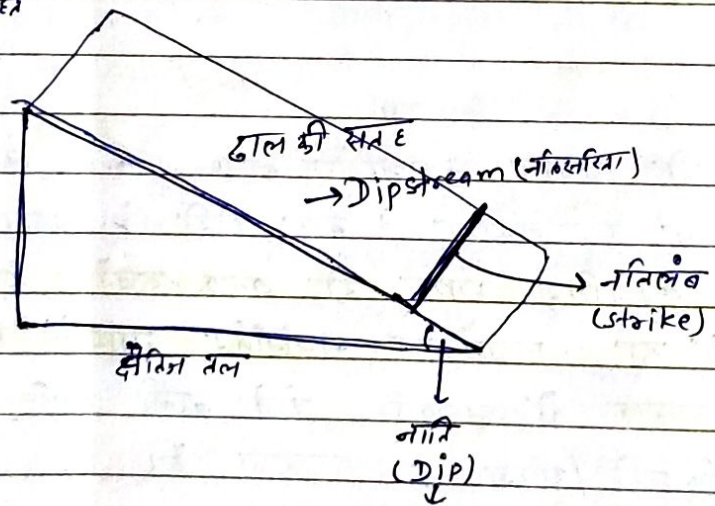 ढाल की सतह
→ Dipstream (नतिसरिता)
→ नतिलंब
(strike)
क्षैतिज तल
नाति
(Dip)